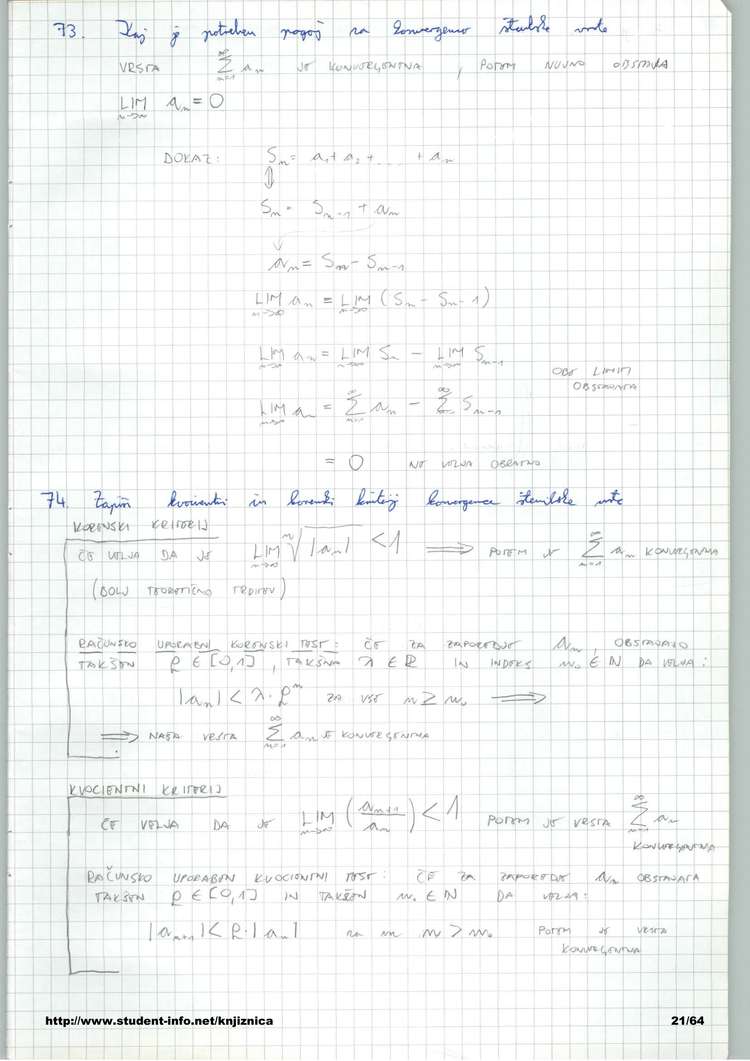 73. Kaj je potreben pogoj za konvergenco številske vrste
VRSTA ∑_{n=1}^{∞} a_n JE KONVERGENTNA , POTEM NUJNO OBSTAJA
LIM_{n→∞} a_n = 0
DOKAZ: S_n = a_1 + a_2 + .... + a_n
⇕
S_n = S_{n-1} + a_n
↓
a_n = S_n - S_{n-1}
LIM_{n→∞} a_n = LIM_{n→∞} (S_n - S_{n-1})
LIM_{n→∞} a_n = LIM_{n→∞} S_n - LIM_{n→∞} S_{n-1}
OBE LIMITI
OBSTAJATA
LIM_{n→∞} a_n = ∑_{n=1}^{∞} a_n - ∑_{n=1}^{∞} S_{n-1}
= 0 NE VELJA OBRATNO
74. Zapiši kvocientni in korenski kriterij konvergence številske vrste
KORENSKI KRITERIJ
ČE VELJA DA JE LIM_{n→∞} ⁿ√|a_n| < 1 ⟹ POTEM JE ∑_{n=1}^{∞} a_n KONVERGENTNA
(BOLJ TEORETIČNO TRDITEV)
RAČUNSKO UPORABNI KORENSKI TEST: ČE ZA ZAPOREDJE a_n, OBSTAJAJO
TAKŠEN ρ ∈ [0,1], TAKŠNA λ ∈ R IN INDEKS n_0 ∈ N DA VELJA:
|a_n| < λ · ρ^n ZA VSE n ≥ n_0 ⟹
⟹ NAŠA VRSTA ∑_{n=1}^{∞} a_n JE KONVERGENTNA
KVOCIENTNI KRITERIJ
ČE VELJA DA JE LIM_{n→∞} (a_{n+1}/a_n) < 1 POTEM JE VRSTA ∑_{n=1}^{∞} a_n
KONVERGENTNA
RAČUNSKO UPORABEN KVOCIENTNI TEST: ČE ZA ZAPOREDJE a_n OBSTAJATA
TAKŠEN ρ ∈ [0,1] IN TAKŠEN n_0 ∈ N DA VELJA:
|a_{n+1}| < ρ · |a_n| za n > n_0 POTEM JE VRSTA
KONVERGENTNA
http://www.student-info.net/knjiznica 21/64